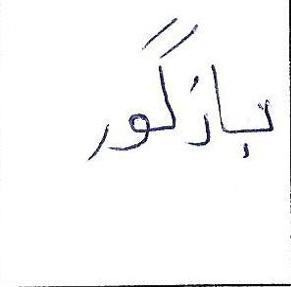 بازگور